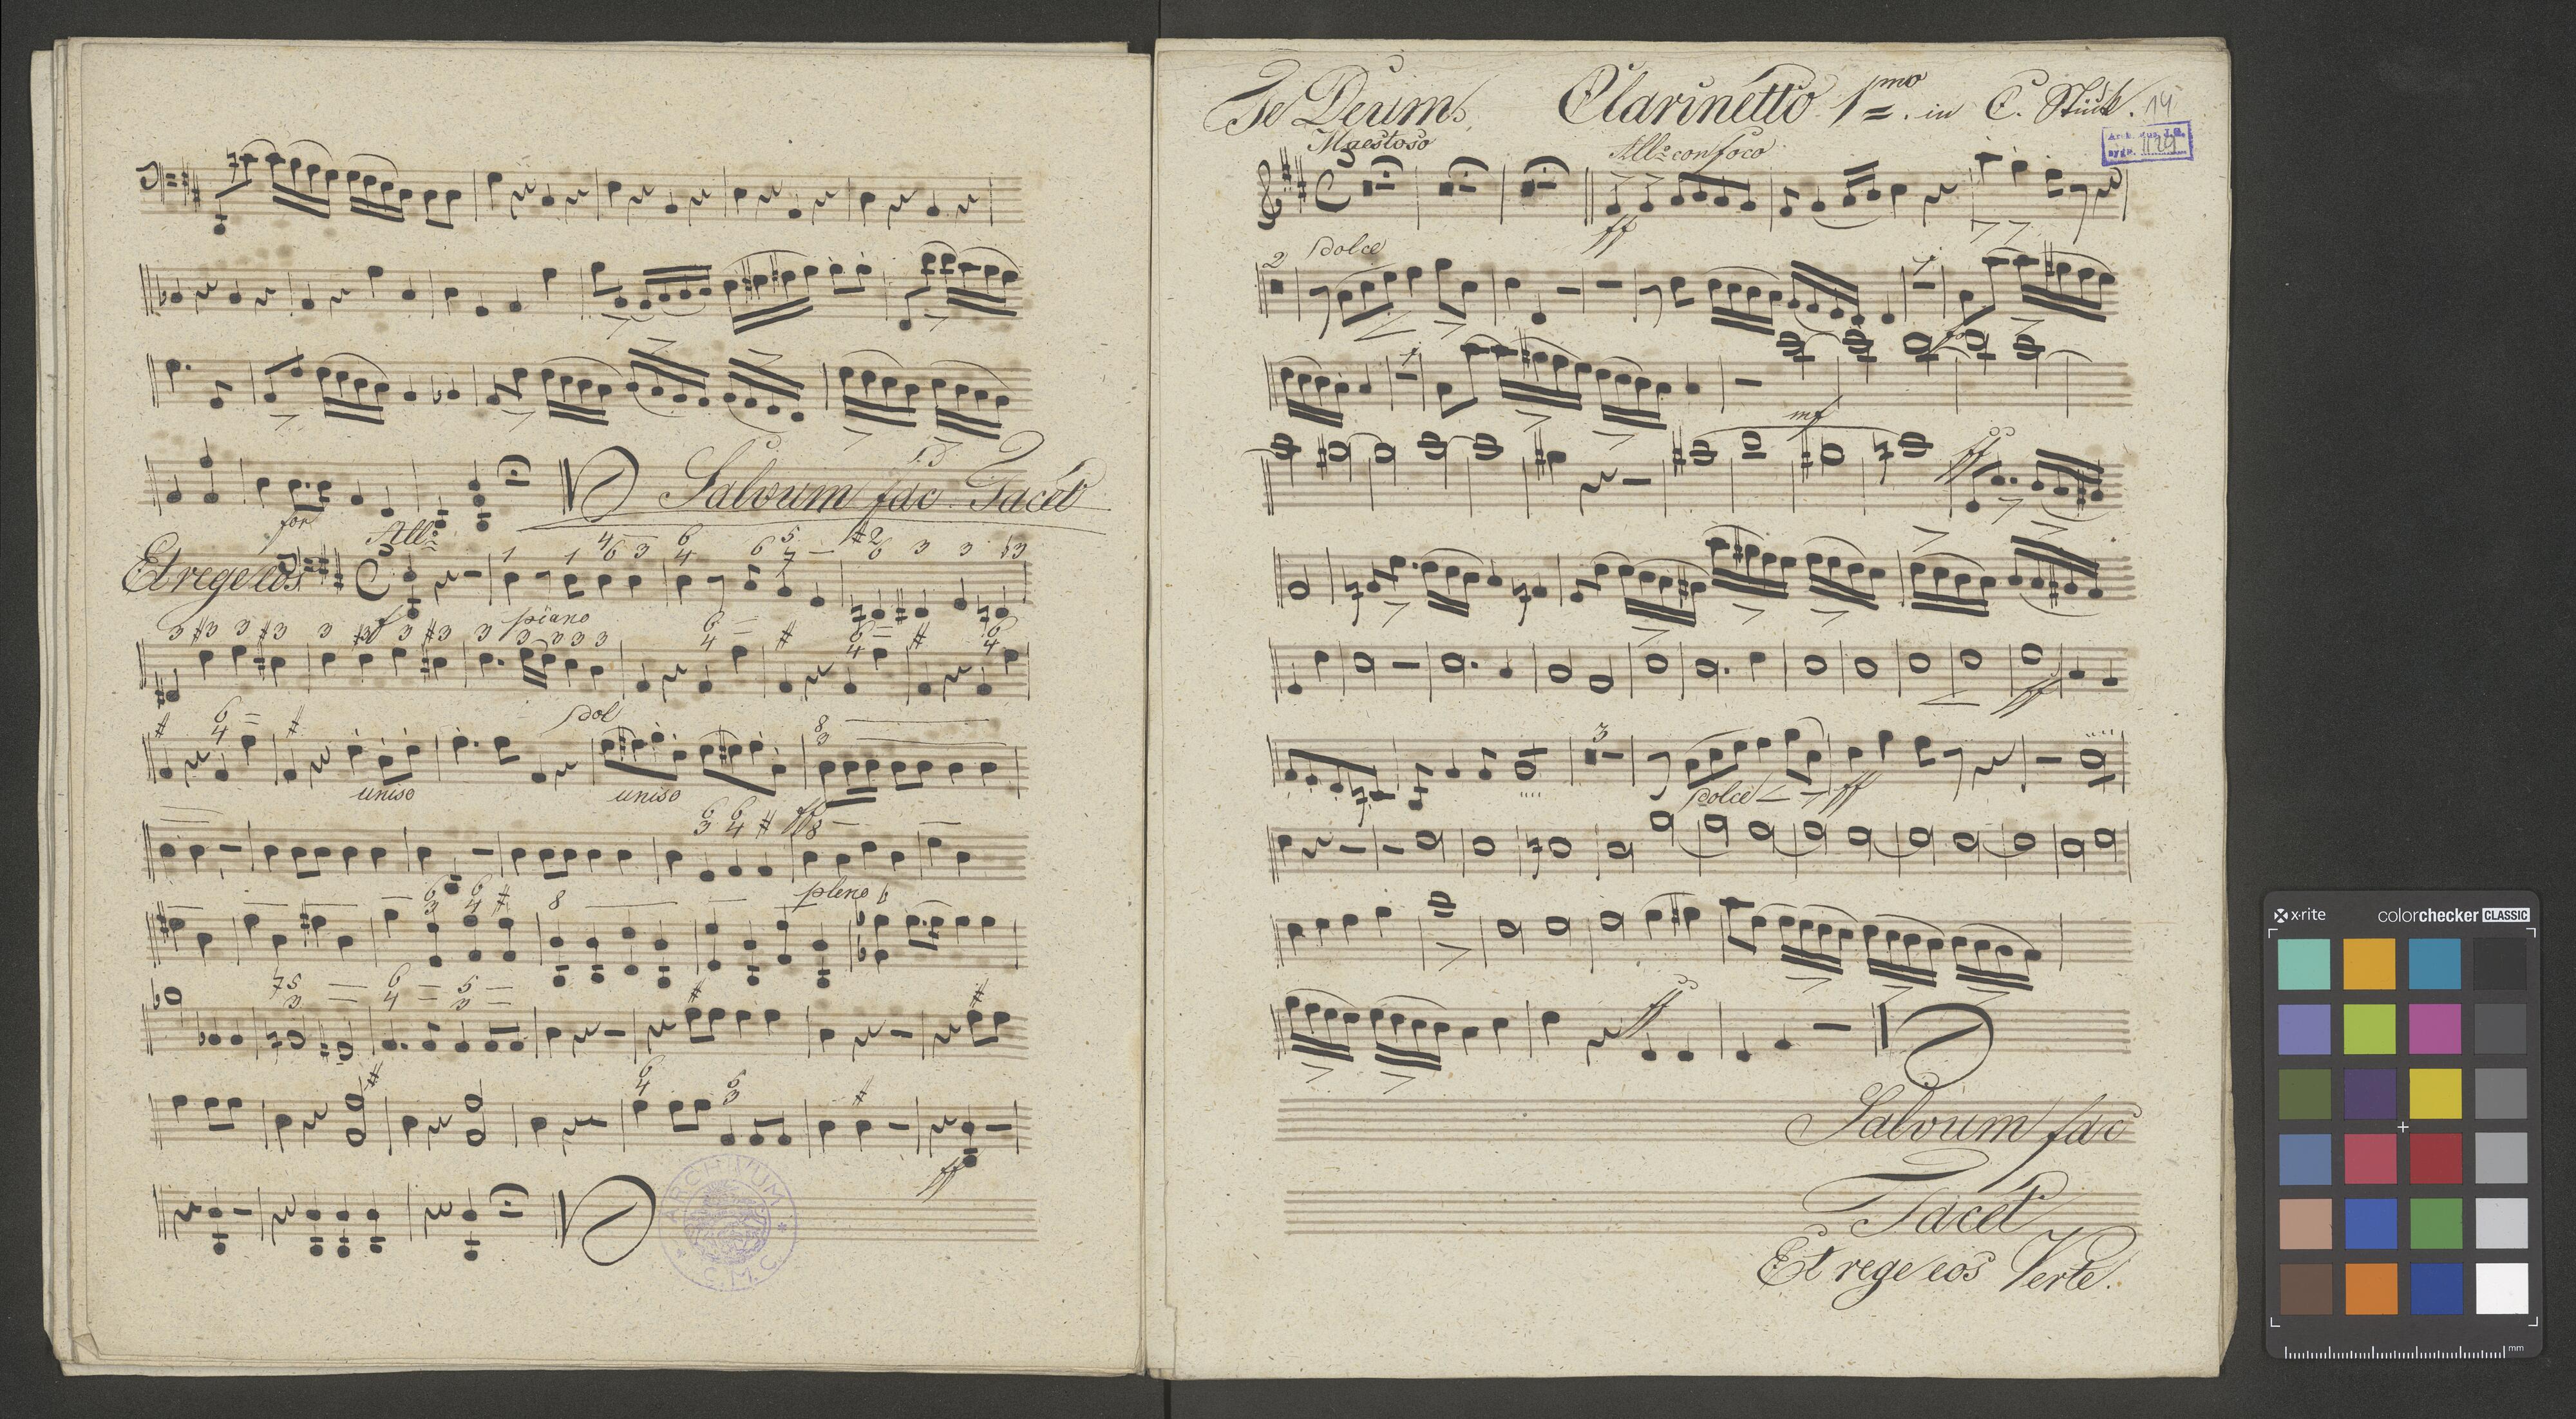 Salvum fac Tacet
for
Et rege eos
Allo
f
piano
dol
uniso
uniso
ff
pleno
ff
ARCHIVUM
C.M.C.
Te Deum. Clarinetto 1mo. in C. Stück. 14
Maestoso
Allo con foco
1129
ff
2 dolce
fo
mf
ff
ff
3
dolce
ff
ff
Salvum fac
Tacet
Et rege eos Verte.
x-rite
colorchecker CLASSIC
mm